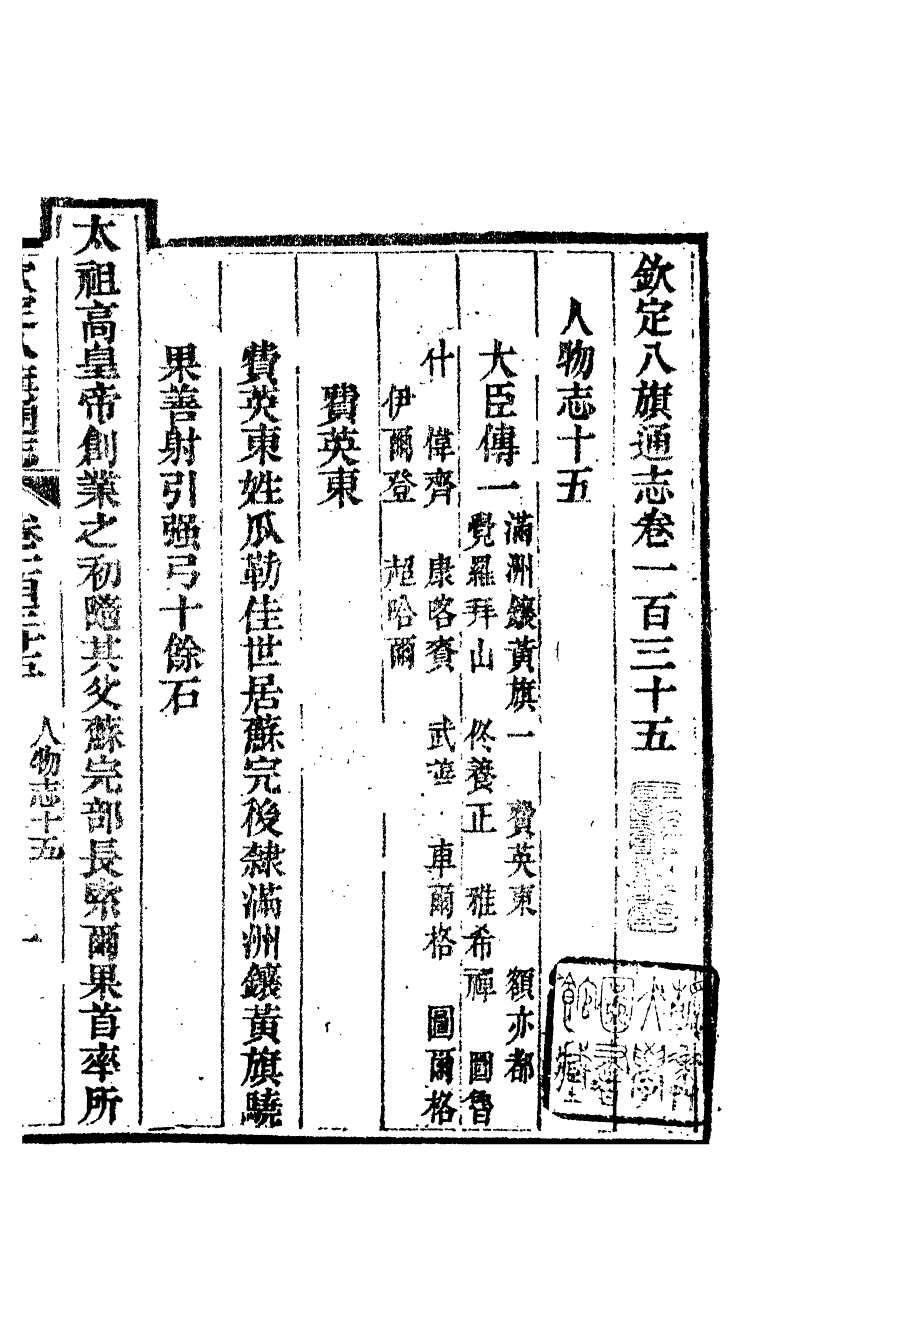 欽定八旗通志卷一百三十五
人物志十五
大臣傳一
滿洲鑲黃旗一 費英東 額亦都
覺羅拜山 佟養正 雅希禪 圖魯
什 偉齊 康喀賚 武 車爾格 圖爾格
伊爾登 超哈爾
費英東
費英東姓瓜勒佳世居蘇完後隸滿洲鑲黃旗驍
果善射引强弓十餘石
太祖高皇帝創業之初隨其父蘇完部長索爾果首率所
欽定八旗通志 卷一百三十五 人物志十五 一